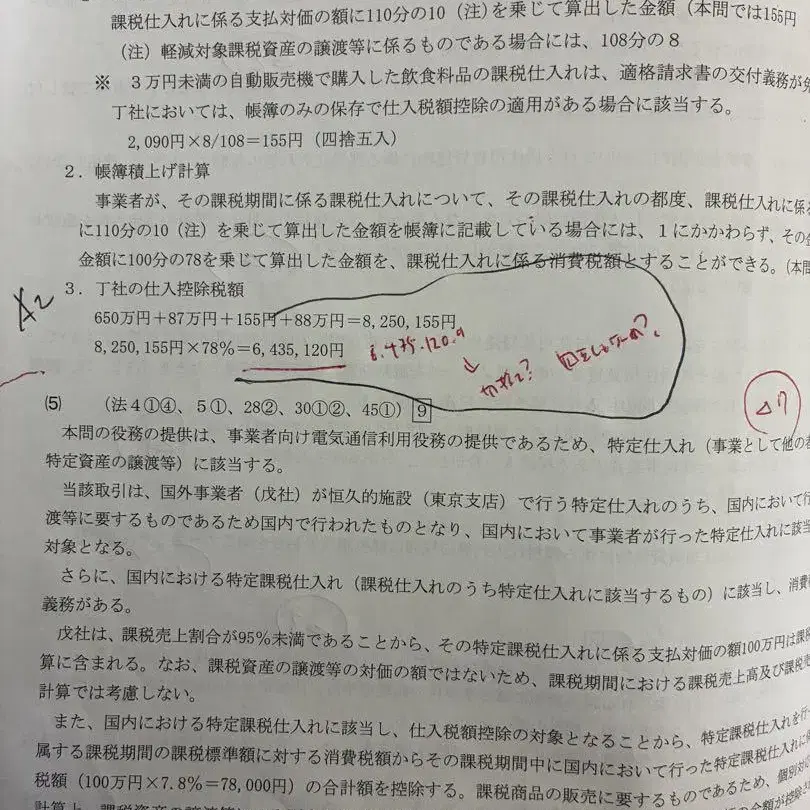 課税仕入れに係る支払対価の額に110分の10（注）を乗じて算出した金額（本問では155円
（注）軽減対象課税資産の譲渡等に係るものである場合には、108分の８
※　３万円未満の自動販売機で購入した飲食料品の課税仕入れは、適格請求書の交付義務が免
丁社においては、帳簿のみの保存で仕入税額控除の適用がある場合に該当する。
2,090円×8/108＝155円（四捨五入）
２．帳簿積上げ計算
事業者が、その課税期間に係る課税仕入れについて、その課税仕入れの都度、課税仕入れに係る
に110分の10（注）を乗じて算出した金額を帳簿に記載している場合には、１にかかわらず、その金
金額に100分の78を乗じて算出した金額を、課税仕入れに係る消費税額とすることができる。（本問
３．丁社の仕入控除税額
650万円＋87万円＋155円＋88万円＝8,250,155円
8,250,155円×78％＝6,435,120円
6.435.120.9
↓
切捨て?
⑸　（法４①④、５①、28②、30①②、45①）9
△7
本問の役務の提供は、事業者向け電気通信利用役務の提供であるため、特定仕入れ（事業として他の者
特定資産の譲渡等）に該当する。
当該取引は、国外事業者（戊社）が恒久的施設（東京支店）で行う特定仕入れのうち、国内において行
渡等に要するものであるため国内で行われたものとなり、国内において事業者が行った特定仕入れに該当
対象となる。
さらに、国内における特定課税仕入れ（課税仕入れのうち特定仕入れに該当するもの）に該当し、消費税
義務がある。
戊社は、課税売上割合が95％未満であることから、その特定課税仕入れに係る支払対価の額100万円は課税
算に含まれる。なお、課税資産の譲渡等の対価の額ではないため、課税期間における課税売上高及び課税売
計算では考慮しない。
また、国内における特定課税仕入れに該当し、仕入税額控除の対象となることから、特定課税仕入れを行っ
属する課税期間の課税標準額に対する消費税額からその課税期間中に国内において行った特定課税仕入れに係
税額（100万円×7.8％＝78,000円）の合計額を控除する。課税商品の販売に要するものであるため、個別対